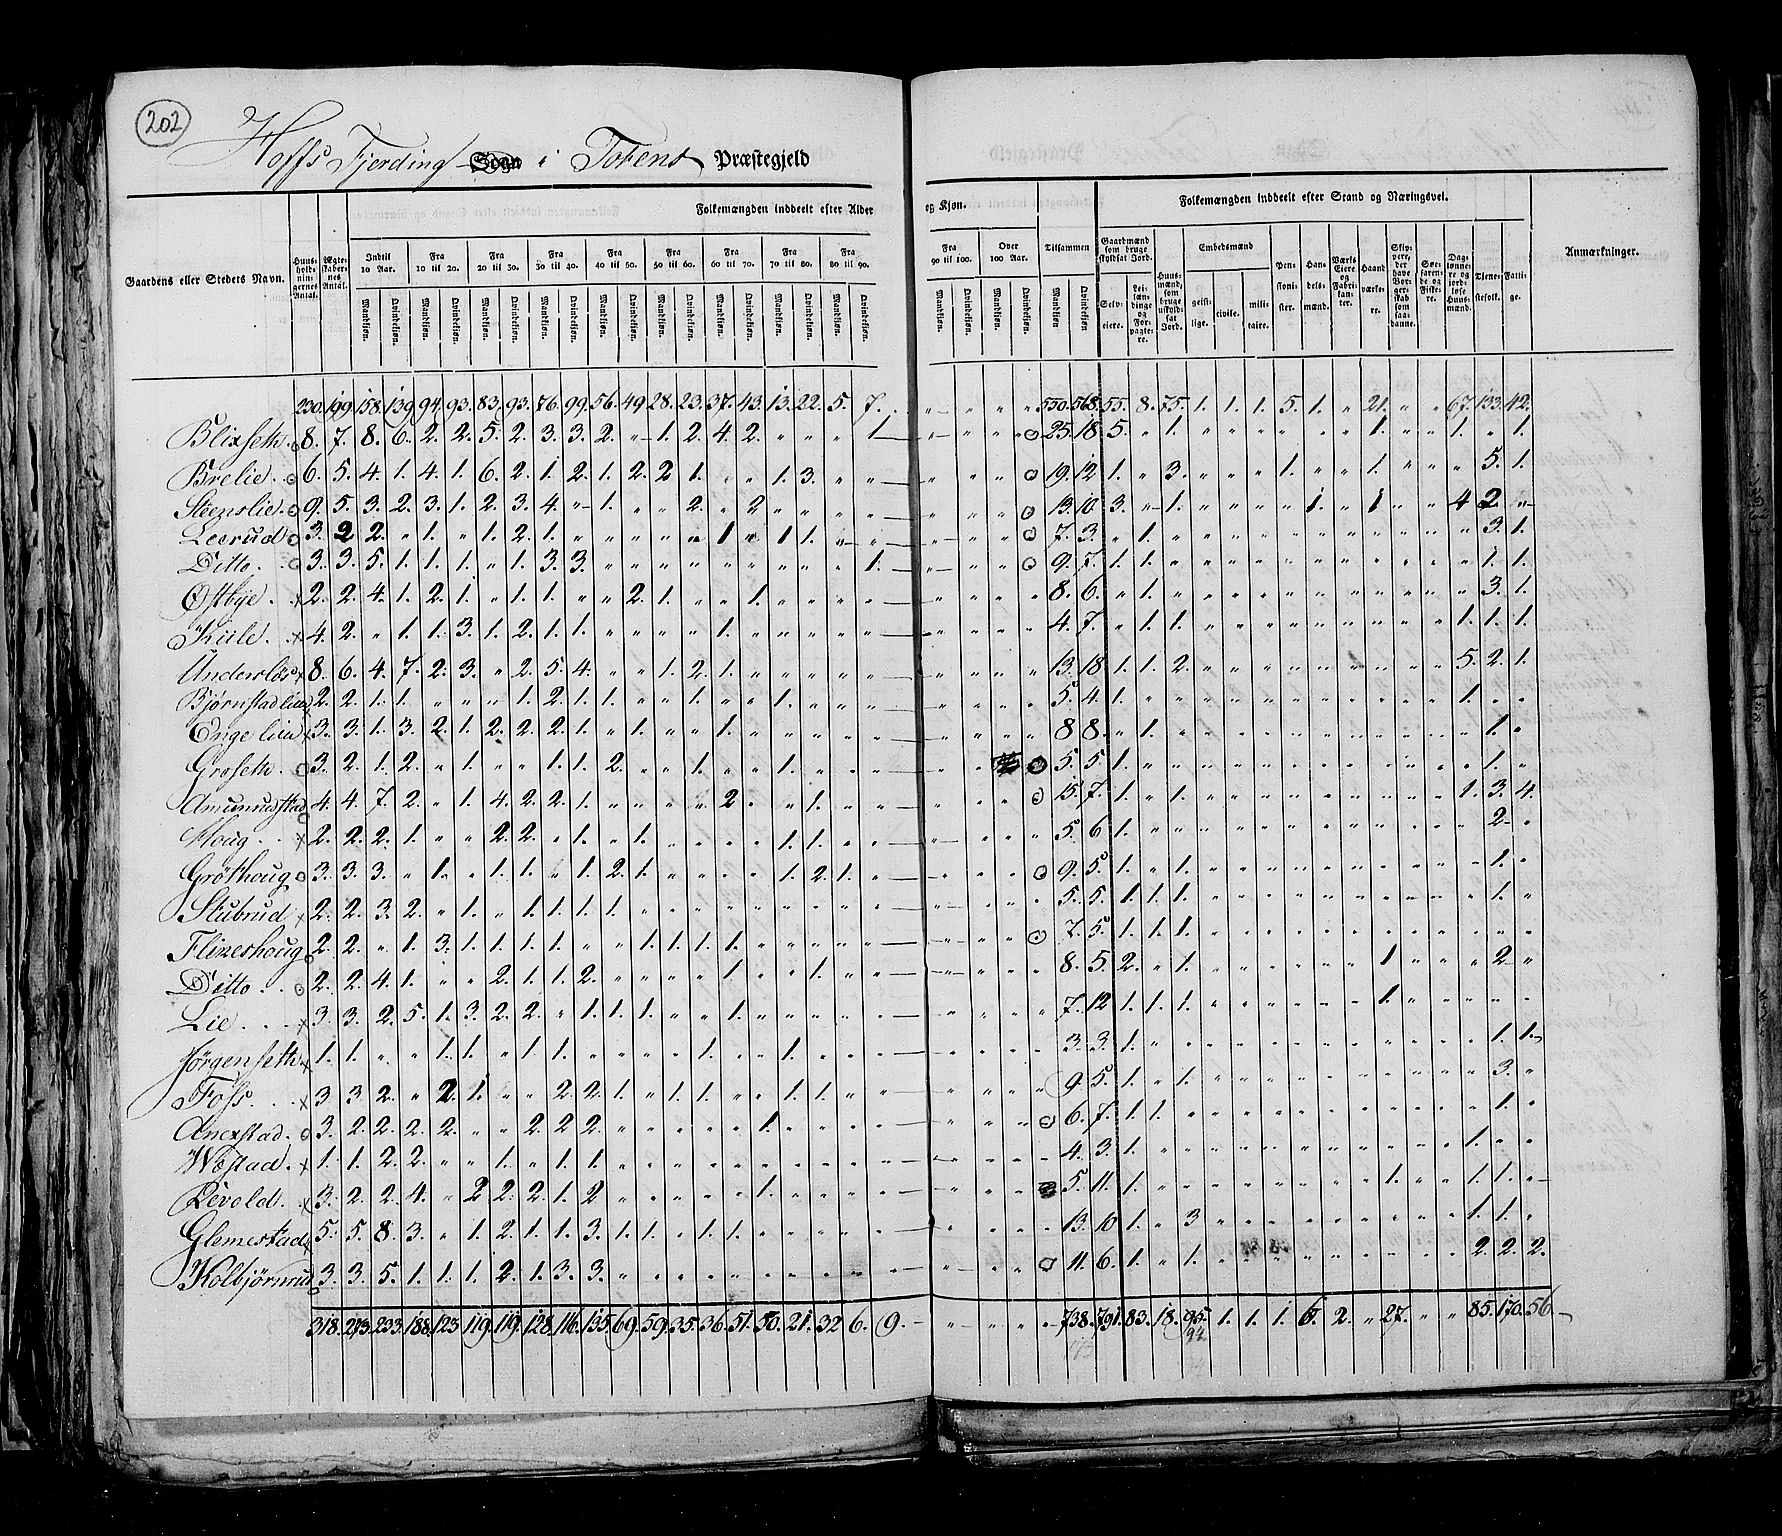 202
Hoffs Fjerding Sogn i Totens Præstegjeld
Gaardens eller Stedets Navn. Huusholdningernes Antal. Ægteskabernes Antal. Folkemængden inddeelt efter Alder og Kjøn. Tilsammen Folkemængden inddeelt efter Stand og Næringsvei. Anmærkninger.
Indtil 10 Aar. Fra 10 til 20. Fra 20 til 30. Fra 30 til 40. Fra 40 til 50. Fra 50 til 60. Fra 60 til 70. Fra 70 til 80. Fra 80 til 90. Fra 90 til 100. Over 100 Aar.
Mandkjøn. Qvindekjøn.
Gaardmænd som bruge skyldsat Jord. Selveiere. Leilændinge og Forpagtere. Huusmænd, som bruge uskyldsat Jord. Embedsmænd geistlige. civile. militaire. Pensionister. Handelsmænd. Værks Eiere og Fabrikanter. Haandværkere. Skippere, der have Borgerskab som saadanne. Søefarende og Fiskere. Daglønnere og jordløse Huusmænd. Tjenestefolk. Fattige.
230. 199. 158. 139. 94. 93. 83. 93. 76. 99. 56. 49. 28. 23. 37. 43. 13. 22. 5. 7. " " " " 550. 568. 55. 8. 75. 1. 1. 1. 5. 1. " 21. " " 67. 133. 42.
Blixseth. 8. 7. 8. 6. 2. 2. 5. 2. 3. 3. 2. " 1. 2. 4. 2. " " " 1. " " " " 25. 18. 5. " 1. " " " " " " 1. " " 1. " 1.
Brelie. 6. 5. 4. 1. 4. 1. 6. 2. 1. 2. 1. 2. 2 1. " " 1. 3. " " " " " " 19. 12. 1. " 3. " " " 1. " " 1. " " " 5. 1.
Steenslie. 9. 5. 3. 2. 3. 1. 2. 3. 4. " 1. " " 2. " 2. " " " " " " " " 13. 10. 3. " 1. " " " " 1. " 1 " " 4 2. "
Leerud 3. 2 2. " 1. " 1. 2. 1. " " " " " 1 " 1 1. " " " " " " 7. 3. " 1. " " " " " " " " " " " 3. 1.
Ditto. 3. 3. 5. 1. 1. 1. " 1. 3. 3. " " " " " " " " " 1. " " " " 9. 7. 1. 1. " " " " " " " " " " " 1. 1.
Østbye. 2. 2. 4. 1. 2. 1. " 1. 1. " " 2. 1. " " 1. " " " " " " " " 8. 6. " 1. " " " " " " " " " " " 3. 1.
Kiile. 4. 2. " 1. 1. 3. 1. 2. 1. 1. " " " " 1. " " " " " " " " " 4. 7. " 1. 1. " " " " " " " " " 1. 1. 1.
8. 6. 4. 7. 2. 3. " 2. 5. 4. " " 1. 2. 1. " " " " " " " " " 13. 18. 1. 1. 2. " " " " " " " " " 5. 2. 1.
Bjørnstadlien 2. 2. 1. 1. " " " 1. 2. 1. 1. " " 1. " " 1. " " " " " " " 5. 4. 1. " " " " " " " " " " " 1. " "
Engelien 3. 3. 1. 3. 2. 1. 2. 2. 2. 1. " 1. " " 1. " " " " " " " " " 8 8. " 1. " " " " " " " " " " " 1. "
Groseth. 3. 2. 1. 2. " 1. " " 1. 1. 2. " " 1. " " 1. " " " " " " 5. 5. 1. " " " " " " " " " " " " 1. "
Amunrudstad 4. 4. 7. 2. " 1. 4. 2. 2. 1. " " " " 2. " " 1. " " " " " " 15. 7. 1. " 1. " " " " " " " " " 1. 3. 4.
Houg. 2. 2. 2. 1. " " 2. 2. " 1. " 1. " " " " 1. 1. " " " " " " 5. 6. 1. " " " " " " " " " " " " 2. "
Grøthoug 3. 3. 3. " 1. " 1. 1. " 1. 2. 1. " " " " 1. 2. 1. " " " " " 9. 5. 1. " 1. " " " " " " " " " " 1. "
Stubrud 2. 2. 3. 2. " 1. " 1. 1. 1. 1. " " " " " " " " " " " " " 5. 5. 1. 1. 1. " " " " " " " " " " 1. "
Flizeshoug 2. 2. " 1. 3. 1. 1. 1. 1. " " 1. 1. 1. 1. " " " " " " " " " 7. 5. 1. 1. 1. " " " " " " " " " " " "
Ditto. 2. 2. 4. 1. " " 2. 1. 1. 2. " " " " 1. " " 1. " " " " " " 8. 5. 2. " 1. " " " " " " 1 " " " 2 "
Lie. 3. 3. 2. 5. 1. 3. 2. 2. " 1. 1. 1. " " 1. " " " " " " " " " 7. 12 1. 1. 1. " " " " " " 1. " " " " "
Jørgenseth 1. 1. " " 1. 1. " 1. 1. " " " " 1. " " 1. " " " " " " " 3. 3. 1. " " " " " " " " " " " " 1. 1.
Foss. 3 3 2. " 2. 1. " " 2. 2. 1. " 1. 1. " " 1. 1. " " " " " " 9. 5. 1. " 1. " " " " " " " " " " 3. "
Anexstad. 3. 2. 2. 2. 2. " " 2. 2 2. " " " " " 1. " " " " " " " " 6. 7. 1. 1. " " " " " " " " " " " 1. "
Westad. 1. 1. 2. 2. " " 1. " 1. 1. " " " " " " " " " " " " " " 4. 3. 1. " " " " " " " " " " " 1. " "
Revold. 3. 2. 2. 4. " 2 2. 2. 1. 2 " " " " " 1. " " " " " " " 5. 11. 1. " " " " " " " " 1. " " 1. 1. "
Glemestad 5. 5. 8. 3. " 1. 2. 1. 1. 3. 1. 1. " 1. 1. " " " " " " " " " 13. 10 1. " 3 " " " " " " " " " 1. 1. "
Kolbjørnrud 3. 3. 5. 1. 1. 1. 2. 1. 3. 3. " " " " " " " " " " " " " " 11. 6. 1. " 1. " " " " " " " " " 2. 2. 2.
318. 273. 233. 188. 123. 119. 119. 128. 116. 135. 69. 59. 35. 36. 51. 50. 21. 32 6. 9. " " " " 738. 791. 83. 18. 95. 1. 1. 1. 6. 2. " 27. " " 85. 170. 56